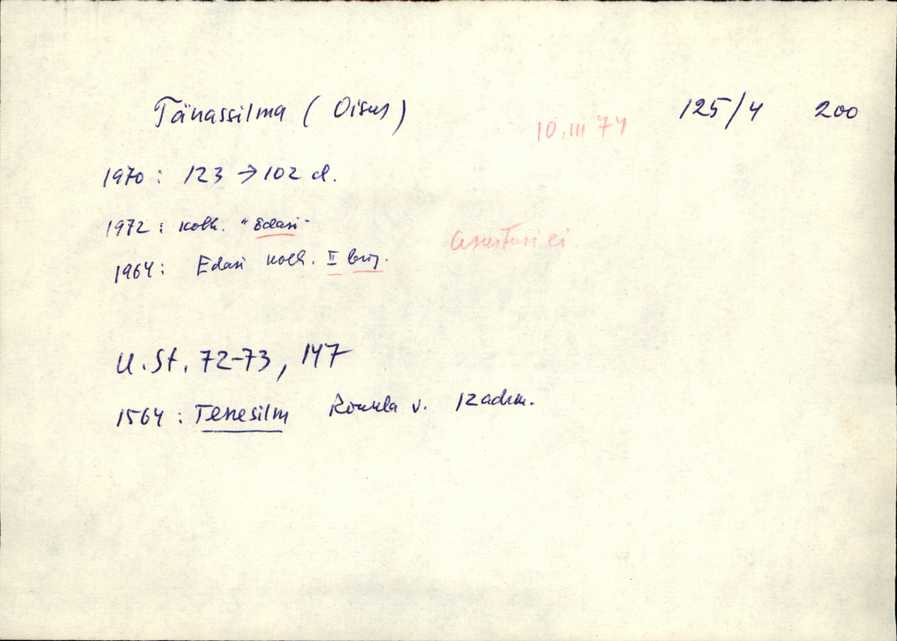 Tänassilma (Oisus) 125/4 200
10. III 74
1970: 123 → 102 el.
1972: kolh. "Edasi"
1964: Edasi kolh. II brig.
U. St. 72-73, 147
1564: Tenesilm v. 12 adrm.